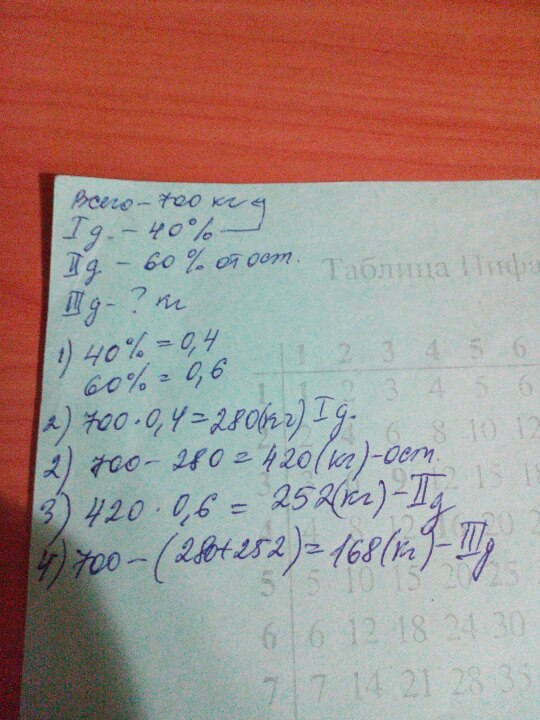 Всего – 700 кг
I д. – 40%
II д – 60% от ост.
III д – ? кг
1) 40% = 0,4
60% = 0,6
2) 700 · 0,4 = 280(кг) I д.
2) 700 – 280 = 420(кг) – ост.
3) 420 · 0,6 = 252(кг) – II д
4) 700 – (280+252) = 168(кг) – III д
Таблица Пифа
1 2 3 4 5 6
1 1 2 3 4 5 6
4 6 8 10 12
9 12 15 18
4 4 8 12 16 20
5 5 10 15 20 25
6 6 12 18 24 30
7 7 14 21 28 35